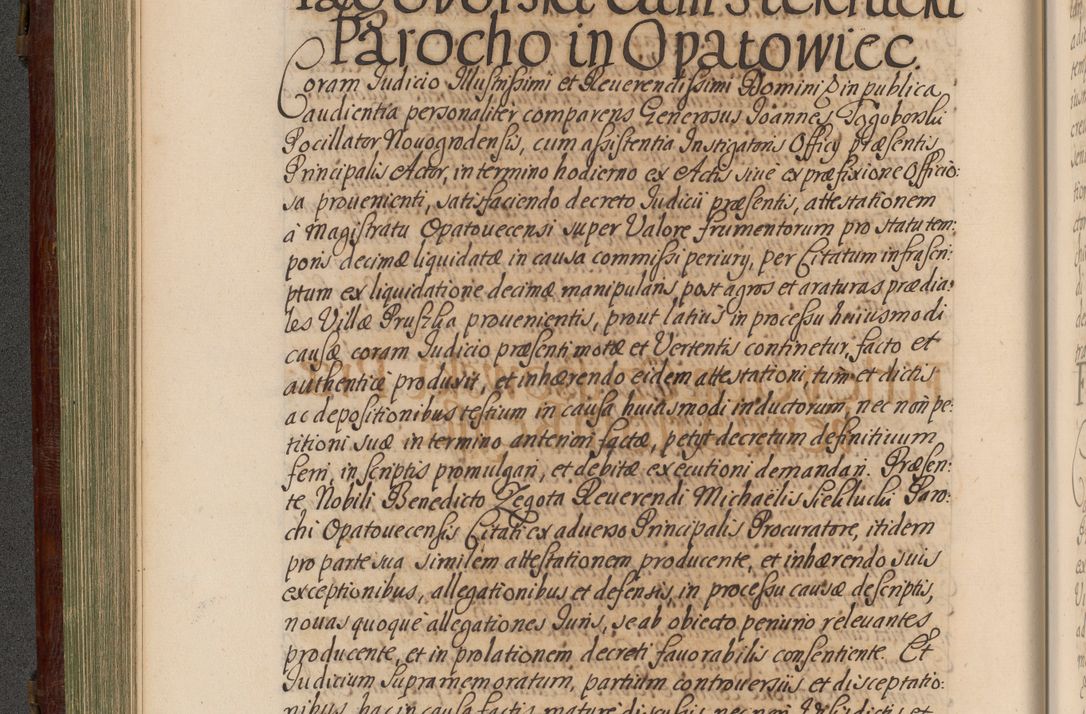 Parocho in Opatowiec.
Coram Judicio Illustrissimi et Reverendissimi Domini in publica
audientia personaliter comparens Generosus Joannes Jagoborski
Pocillator Novogrodensis, cum assistentia Instigatoris Officij præsentis
Principalis Actor, in termino hodierno ex Actis sive ex præfixione Officio:
sa provenienti, satisfaciendo decreto Judicii præsentis, attestationem
à Magistratu Opatovecensi super Valore frumentorum pro statu tem:
poris decimæ liquidatæ in causa commissi periurij, per Citatum infrascri
ptum ex liquidatione decimæ manipularis post agros et araturas prædia:
les Villæ Pruszka provenientis, prout latius in processu huiusmodi
causæ coram Judicio præsenti motæ et Vertentis continetur, facto et
authenticè produxit, et inhærendo eidem attestationi, tum et dictis
ac depositionibus testium in causa huiusmodi inductorum, nec non pe:
titioni suæ in termino anteriori factæ, petyt decretum definitivum
ferri, in scriptis promulgari, et debitæ executioni demandari. Præsen:
te Nobili Benedicto Zegota Reverendi Michaëlis Siekluchi Paro:
chi Opatovecensis Citati ex adverso Principalis Procuratore, itidem
pro parte sua similem attestationem producente, et inhærendo suis
exceptionibus, allegationibus et defensis, in processu causæ descriptis,
novas quoque allegationes Juris, se ab obiecto periurio relevantes
producente, et in prolationem decreti favorabilis consentiente. Et
Judicium supramemoratum, partium controversiis et disceptatio:
nibus hac in causa factis mature discussis nec non